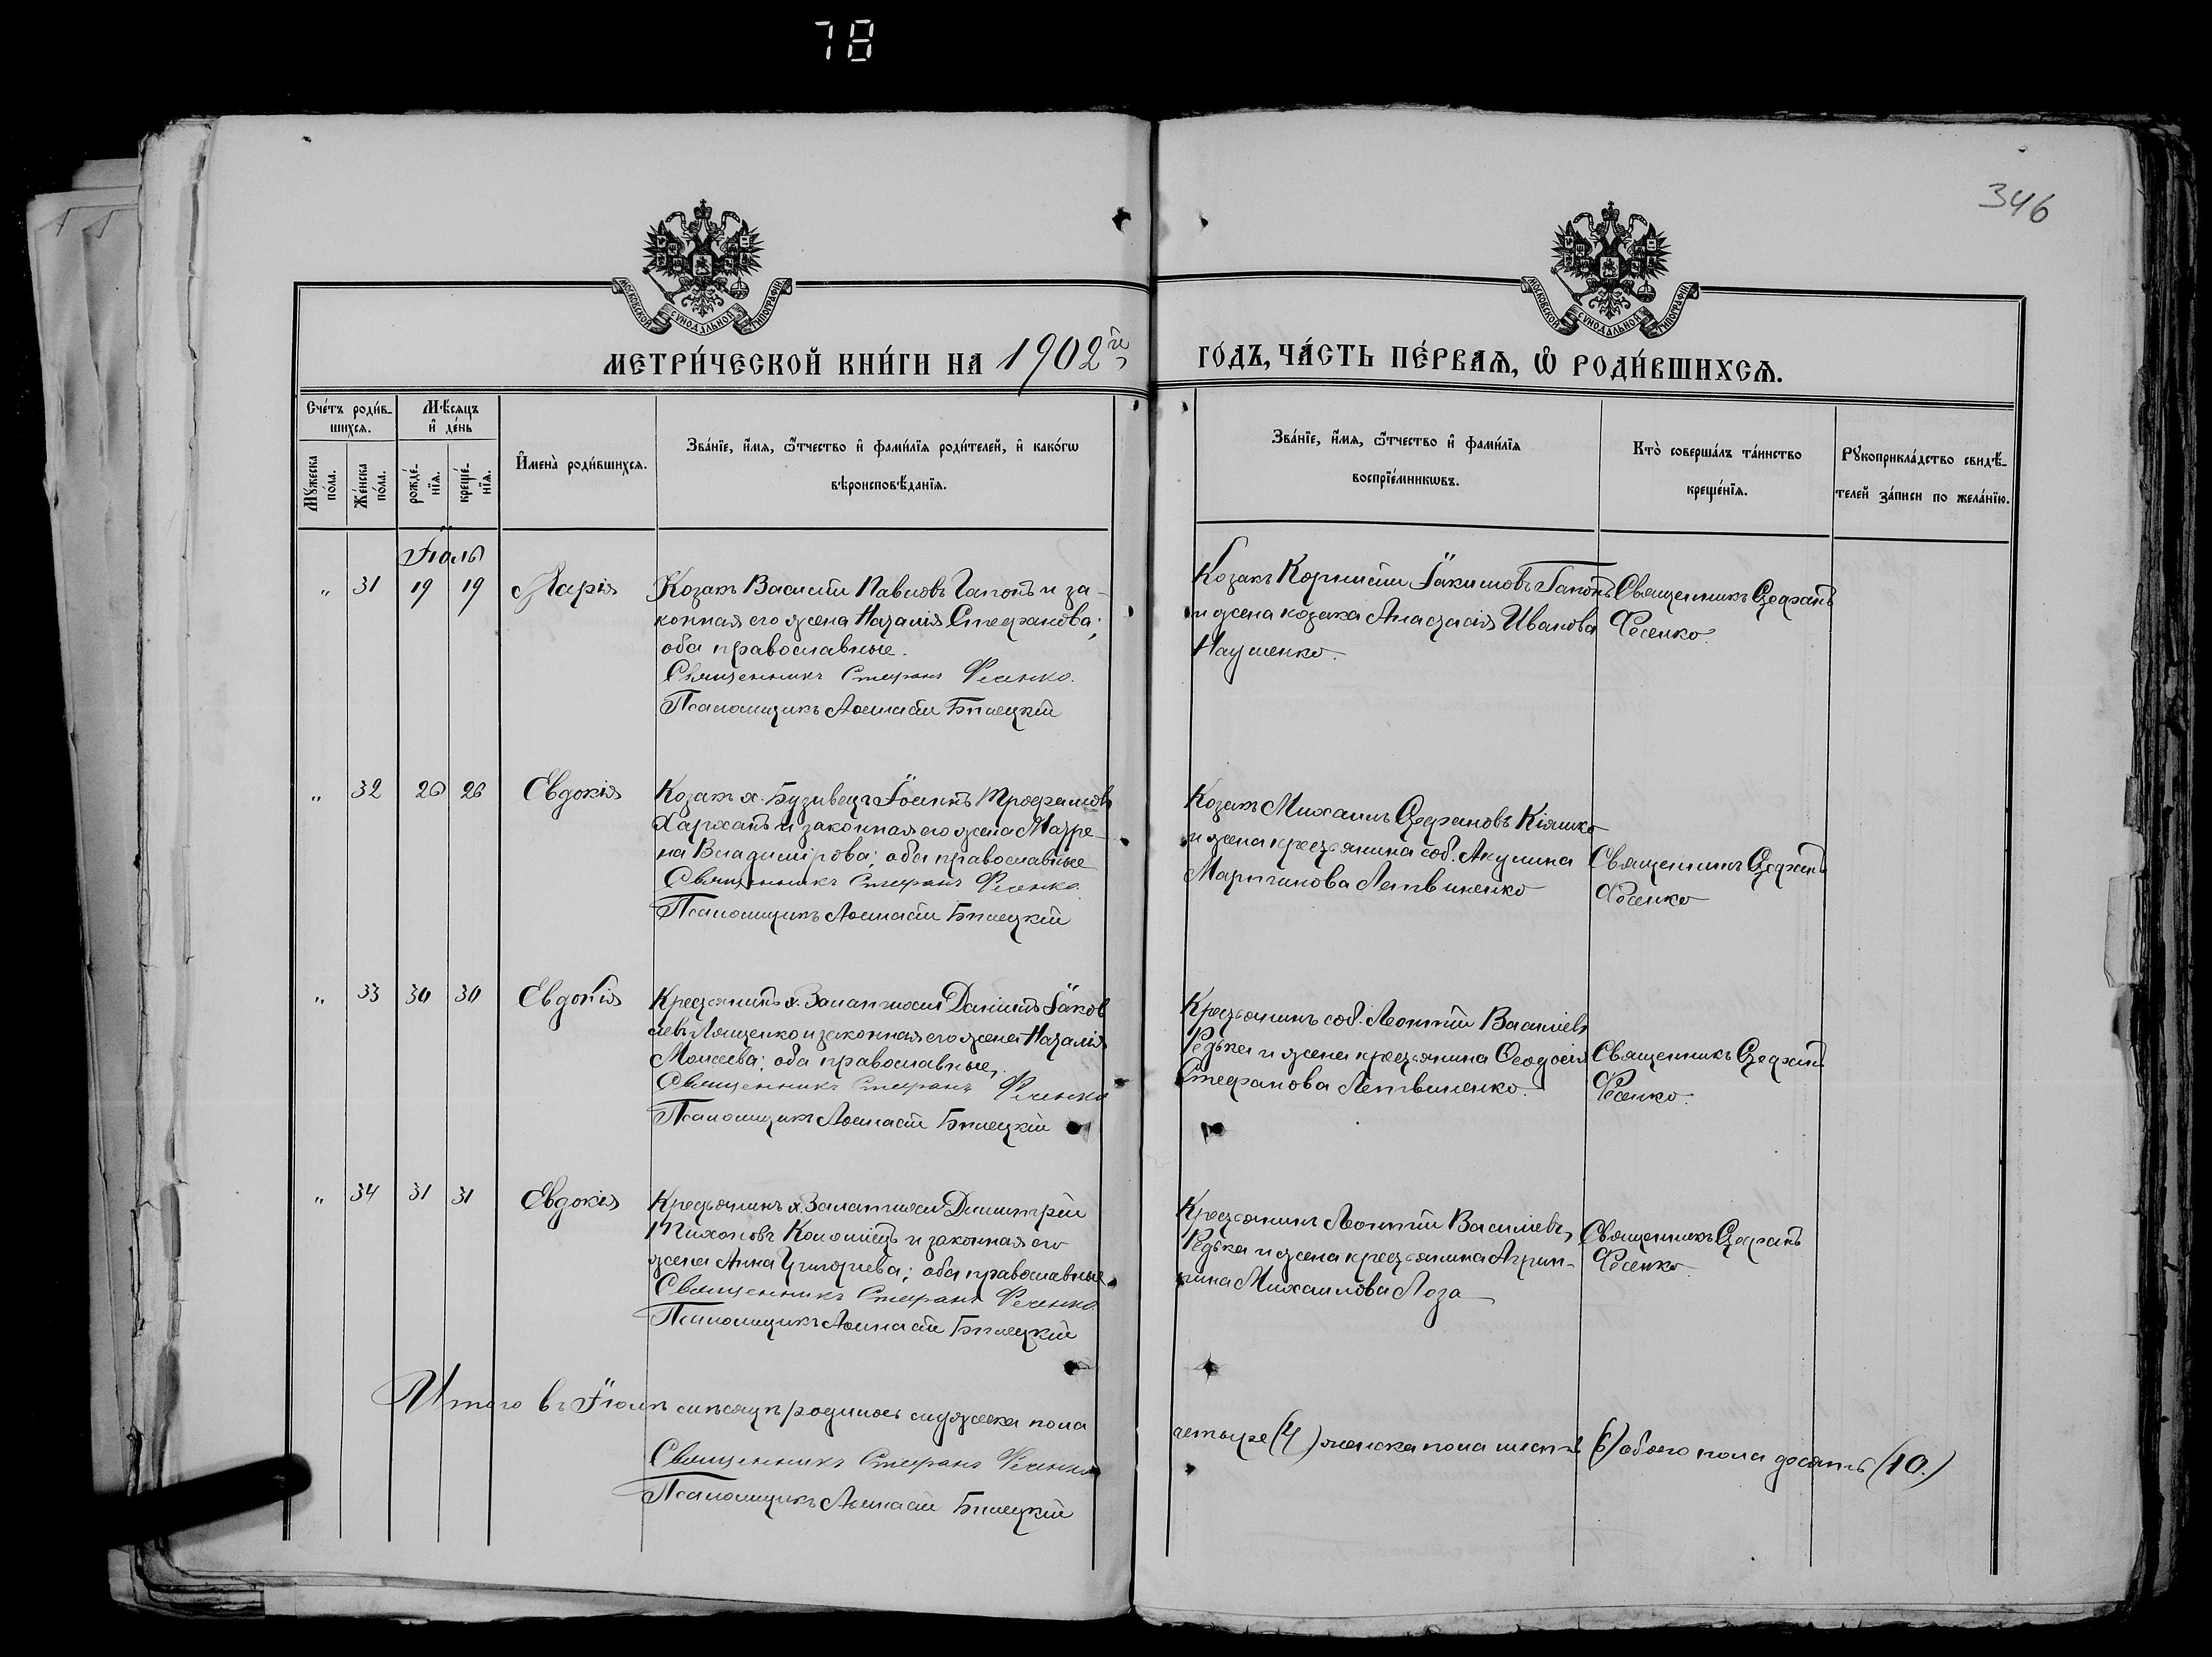 78
346
МОСКОВСКОЙ СУНОДАЛЬНОЙ ТИПОГРАФІИ
МОСКОВСКОЙ СУНОДАЛЬНОЙ ТИПОГРАФІИ
МЕТРИ́ЧЕСКОЙ КНИ́ГИ НА 1902й
ГО́ДЪ, ЧА́СТЬ ПЕ́РВАѦ, Ѡ҆ РОДИ́ВШИХСѦ.
Сче́тъ роди́в-
шихсѧ.
Мѣсяцъ
и҆ де́нь
Мꙋжеска по́ла.
Же́нска по́ла.
рожде́-
нїѧ.
креще́-
нїѧ.
И҆мена̀ роди́вшихсѧ.
Зва́нїе, и҆́мѧ, ѻ҆́тчество и҆ фами́лїѧ роди́телей, и҆ како́гѡ
вѣроисповѣ́данїѧ.
Зва́нїе, и҆́мѧ, ѻ҆́тчество и҆ фами́лїѧ
воспрїе́мникѡвъ.
Кто̀ соверша́лъ та́инство
креще́нїѧ.
Рꙋкоприкла́дство свидѣ́-
телей за́писи по жела́нїю.
Іюль
„ 31 19 19 Марія
Козакъ Василій Павловъ Гапонъ и за-
конная его жена Наталія Стефанова;
оба православные.
Священникъ Стефанъ Фесенко.
Псаломщикъ Аѳанасій Билецкій
Козакъ Корнилій Іакимовъ Гапонъ
и жена козака Анастасія Иванова
Науменко.
Священникъ Стефанъ
Фесенко.
„ 32 26 26 Евдокія
Козакъ х. Бузивецъ Іоаннъ Трофимовъ
Харханъ и законная его жена Матро-
на Владимірова; оба православные
Священникъ Стефанъ Фесенко.
Псаломщикъ Аѳанасій Билецкій
Козакъ Михаилъ Стефановъ Кіяшко
и жена крестьянина соб. Акулина
Мартинова Литвиненко
Священникъ Стефанъ
Фесенко
„ 33 30 30 Евдокія
Крестьянинъ х. Даніилъ Іаков
левъ Лященко и законная его жена Наталія
Моисеева; оба православные.
Священникъ Стефанъ Фесенко
Псаломщикъ Аѳанасій Билецкій
Крестьянинъ соб. Леонтій Василіевъ
Редька и жена крестьянина Ѳеодосія
Стефанова Литвиненко.
Священникъ Стефанъ
Фесенко.
„ 34 31 31 Евдокія
Крестьянинъ х. Димитрій
Тихоновъ Коломіецъ и законная его
жена Анна Григорьева; оба православные.
Священникъ Стефанъ Фесенко.
Псаломщикъ Аѳанасій Билецкій
Крестьянинъ Леонтій Василіевъ
Редька и жена крестьянина Агрип-
пина Михаилова Лоза
Священникъ Стефанъ
Фесенко
Итого въ Іюлѣ мѣсяцѣ родилось мужеска пола
четыре (4) женска пола шесть (6) обоего пола десять (10.)
Священникъ Стефанъ Фесенко
Псаломщикъ Аѳанасій Билецкій